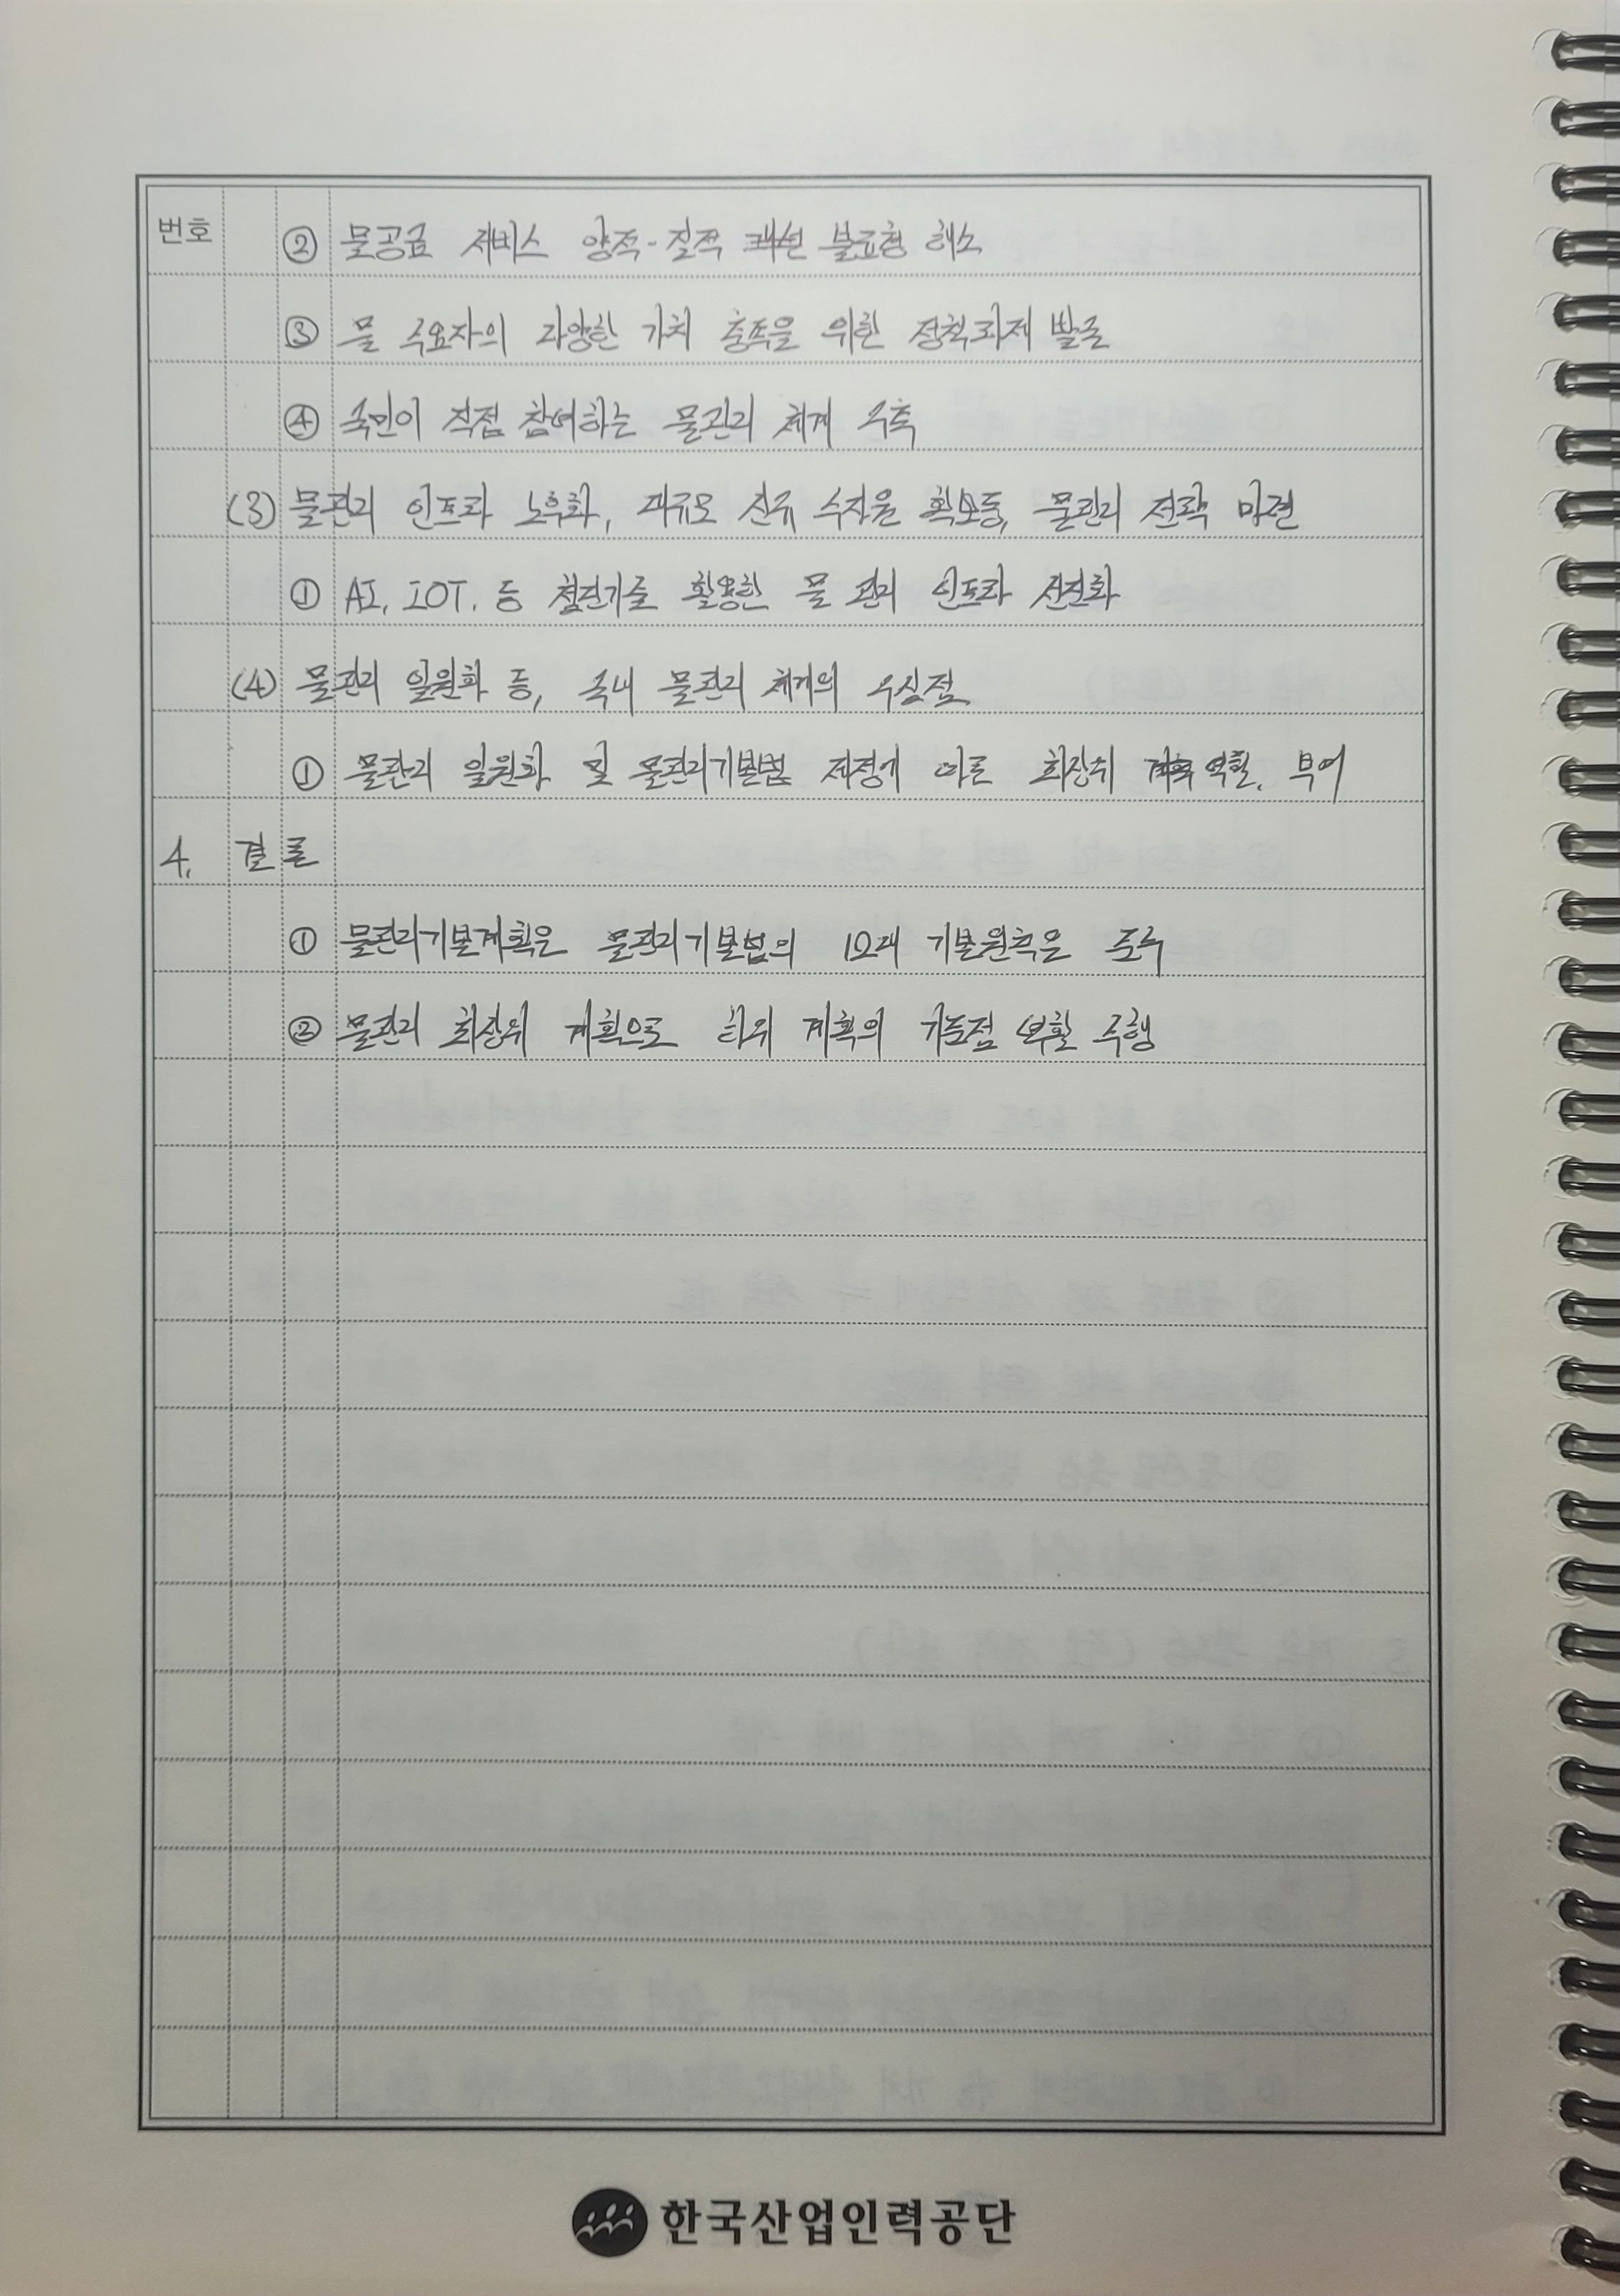 번호 ② 물공급 서비스 양적-질적 불균형 해소
③ 물 수요자의 다양한 가치 충족을 위한 정책과제 발굴
④ 국민이 직접 참여하는 물관리 체계 구축
(3) 물관리 인프라 노후화, 대규모 신규 수자원 확보등, 물관리 전략 마련
① AI, IOT, 등 첨단기술 활용한 물 관리 인프라 선진화
(4) 물관리 일원화 등, 국내 물관리 체계의 우상점
① 물관리 일원화 및 물관리기본법 제정에 따른 최상위 역할, 부여
4. 결론
① 물관리기본계획은 물관리기본법의 12대 기본원측은 준수
② 물관리 최상위 계획으로 하위 계획의 기준점 수행
한국산업인력공단